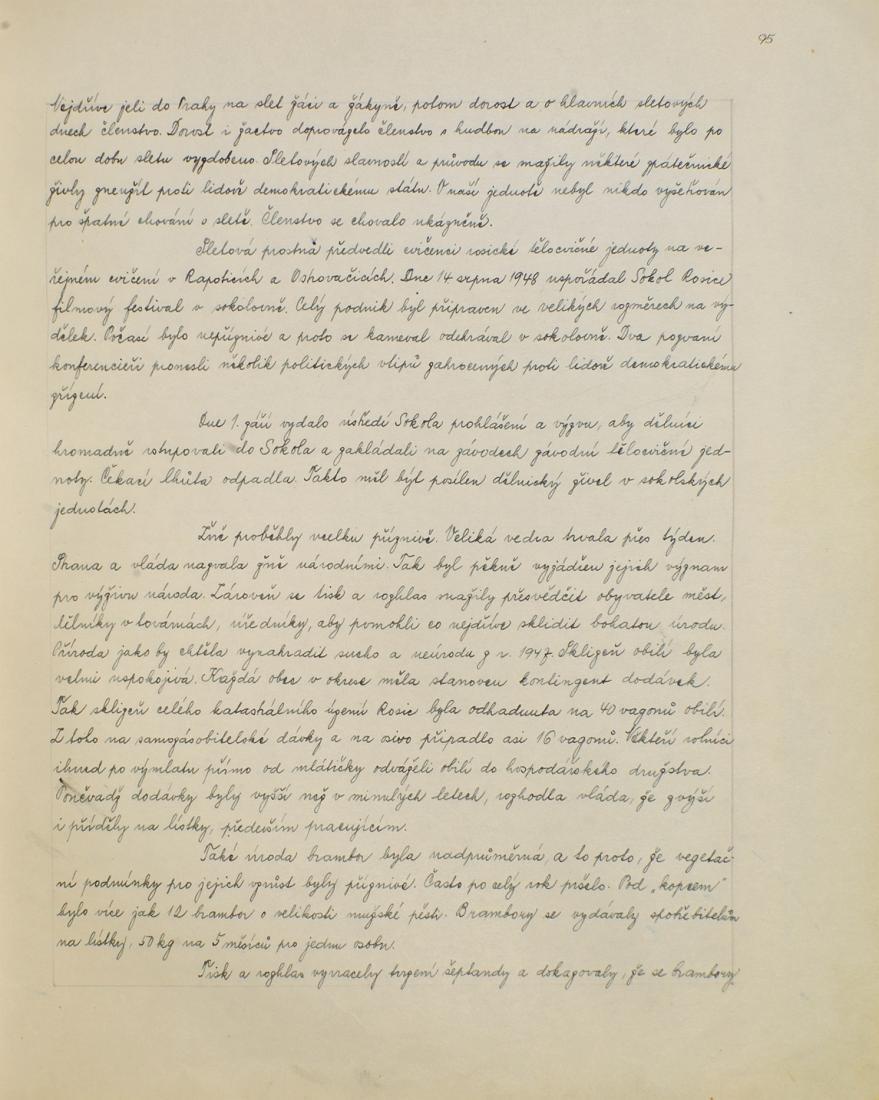 95
Nejdříve jeli do Prahy na slet žáci a žákyně, potom dorost a o hlavních sletových
dnech členstvo. Dorost i žactvo doprovázelo členstvo s hudbou na nádraží, které bylo po
celou dobu sletu vyzdobeno. Sletových slavností a průvodu se mažily některé zpátečnické
živly zneužít proti lidově demokratickému státu. V naší jednotě nebyl nikdo vyšetřován
pro špatné chování o sletě. Členstvo se chovalo ukázněně.
Sletová prostná předvedli cvičenci rosické tělocvičné jednoty na ve-
řejném cvičení v Rapoticích a Ostrovačicích. Dne 14 srpna 1948 uspořádal Sokol Rosice
filmový festival v sokolovně. Celý podnik byl připraven ve velikých rozměrech na vý-
dělek. Počasí bylo nepříznivé a proto se karneval odehrával v sokolovně. Dva pozvaní
konferencieři pronesli několik politických vtipů zahrocených proti lidově demokratickému
zřízení.
Dne 1. září vydalo ústředí Sokola prohlášení a výzvu, aby dělníci
hromadně vstupovali do Sokola a zakládali na závodech závodní tělocvičné jed-
noty. Čekací lhůta odpadla. Takto měl být posílen dělnický živel v sokolských
jednotách.
Žně proběhly vcelku příznivě. Veliká vedra trvala přes týden.
Strana a vláda nazvala žně národními. Tak byl pěkně vyjádřen jejich význam
pro výživu národa. Zároveň se tisk a rozhlas mažily přesvědčit obyvatele měst,
dělníky v továrnách, úředníky, aby pomohli co nejdříve sklidit bohatou úrodu.
Příroda jako by chtěla vynahradit sucho a neúrodu z r. 1947. Sklizeň obilí byla
velmi uspokojivá. Každá obec v okrese měla stanoven kontingent dodávek.
Tak sklizeň celého katastrálního území Rosic byla odhadnuta na 40 vagonů obilí.
Z toho na samozásobitelské dávky a na osivo připadlo asi 16 vagonů. Někteří rolníci
ihned po výmlatu přímo od mlátičky odváželi obilí do hospodářského družstva.
Poněvadž dodávky byly vyšší než v minulých letech, rozhodla vláda, že zvýší
i příděly na lístky, především pracujícím.
Také úroda brambor byla nadprůměrná, a to proto, že vegetač-
ní podmínky pro jejich vzrůst byly příznivé. Často po celý rok pršelo. Pod „kopcem"
bylo více jak 12 brambor o velikosti mužské pěsti. Brambory se vydávaly spotřebitelům
na lístky, 50 kg na 5 měsíců pro jednu osobu.
Tisk a rozhlas vyvracely tvrzení šeptandy a dokazovaly, že se brambory